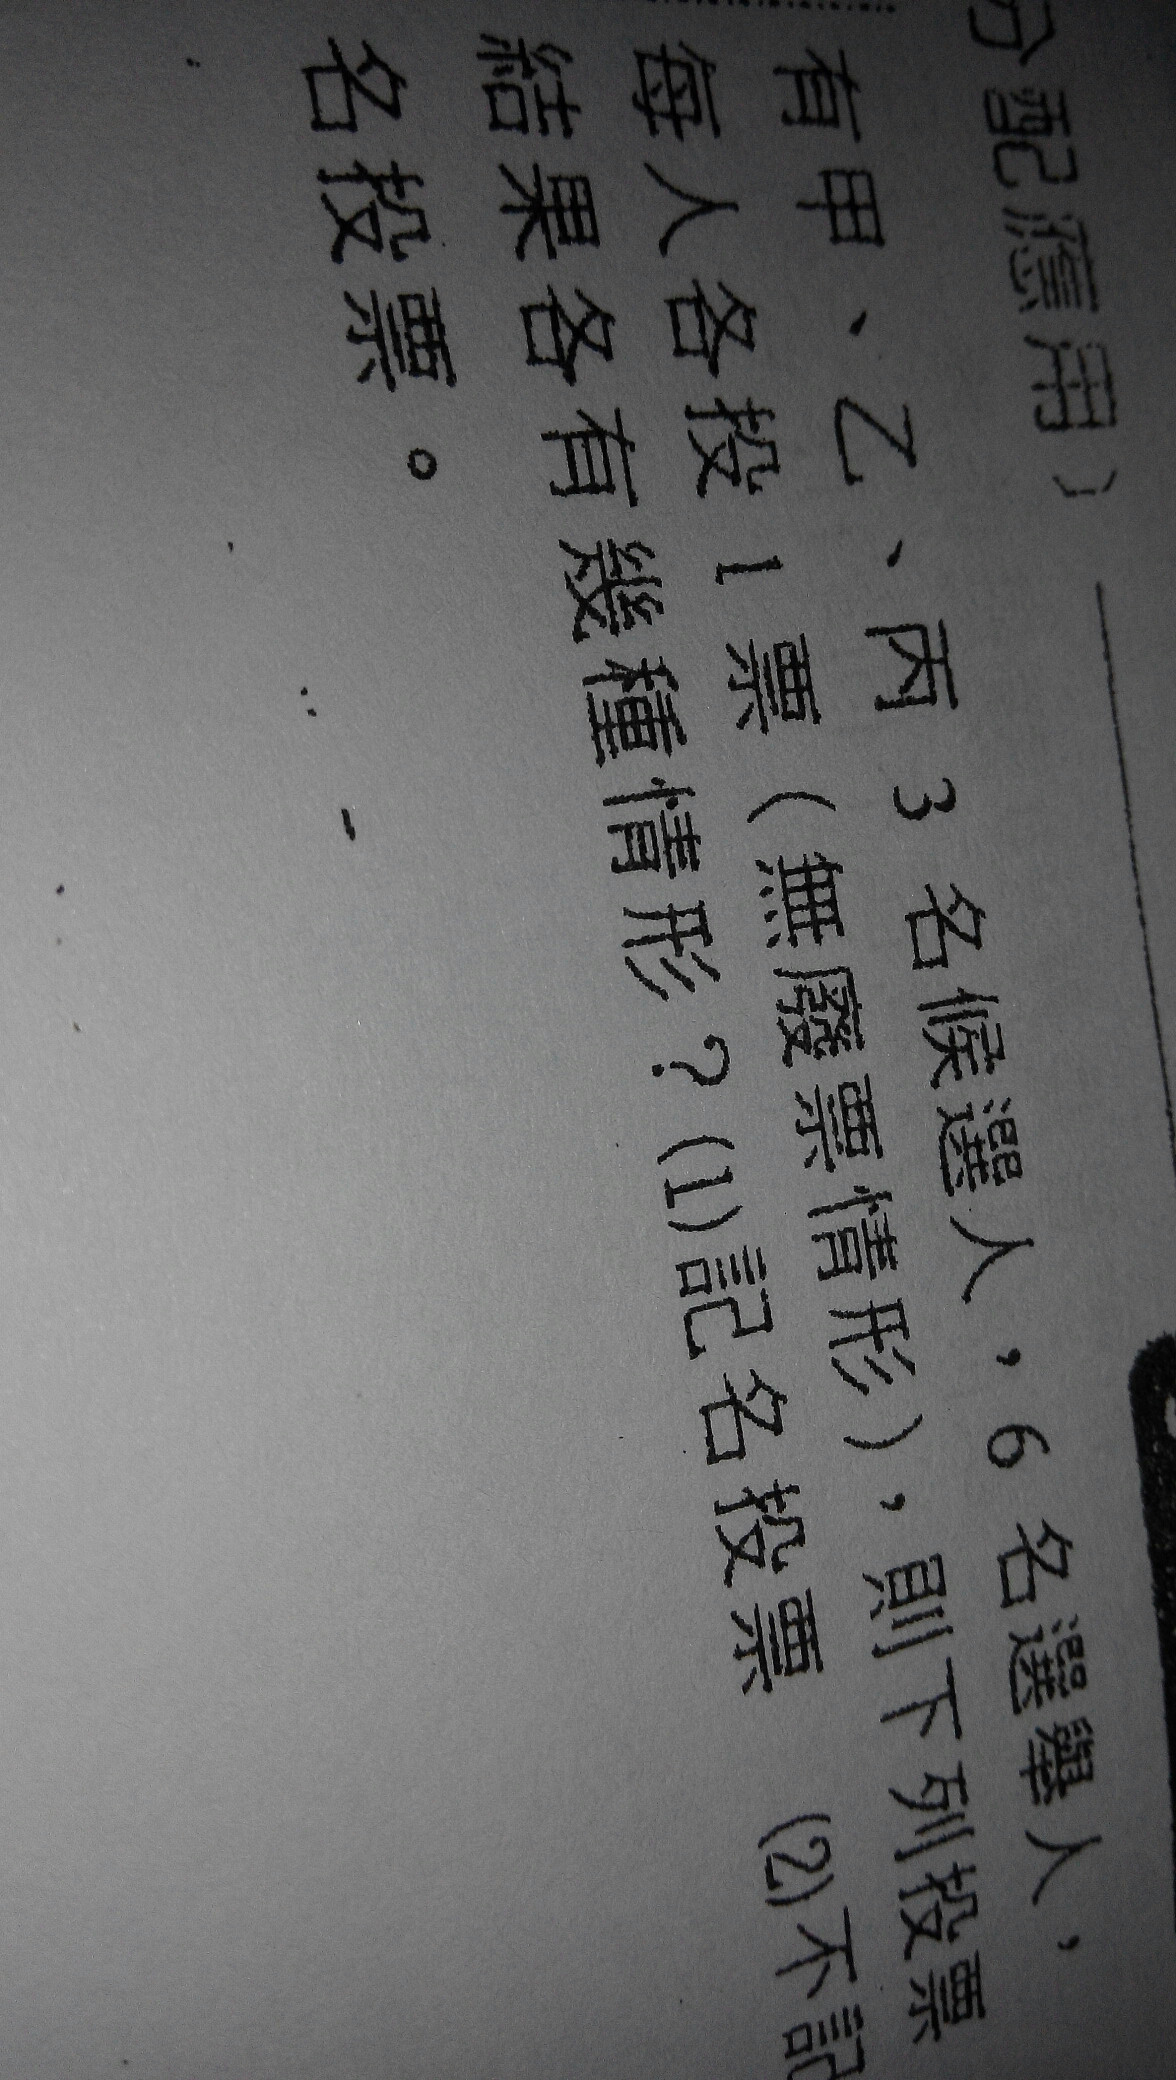 分配應用）
有甲、乙、丙 3 名候選人，6 名選舉人，
每人各投 1 票（無廢票情形），則下列投票
結果各有幾種情形？(1)記名投票 (2)不記
名投票。